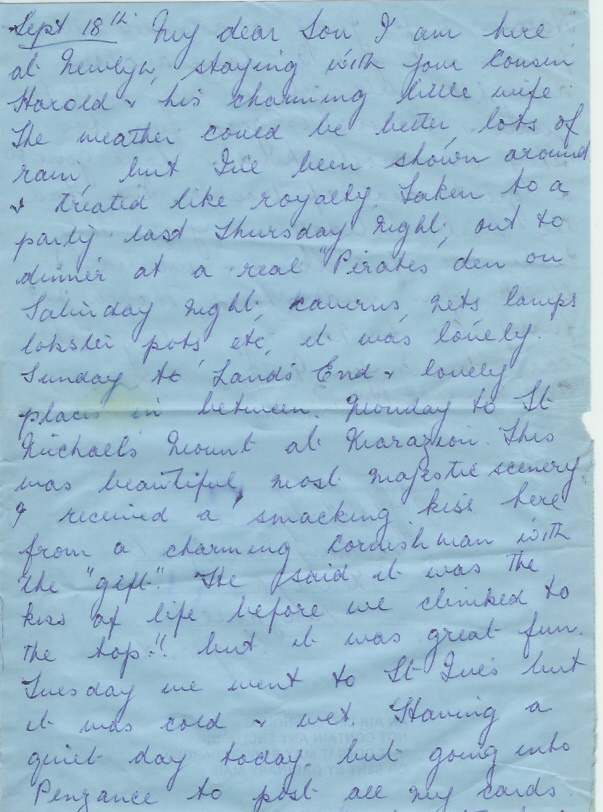 Sept 18th My dear Son I am here
at Newlyn, staying with your Cousin
Harold & his charming little wife
The weather could be better, lots of
rain, but I've been shown around
& treated like royalty. Taken to a
party last Thursday night, out to
dinner at a real "Pirates den on
Saturday night, caverns, nets lamps
lobster pots, etc, it was lovely.
Sunday to Lands End & lovely
places in between. Monday to St
Michaels Mount at Marazion. This
was beautiful, most majestic scenery
I received a smacking kiss here
from a charming Cornishman with
the "gift". He said it was the
kiss of life before we climbed to
the top." but it was great fun.
Tuesday we went to St Ives but
it was cold & wet. Having a
quiet day today, but going into
Penzance to post all my cards